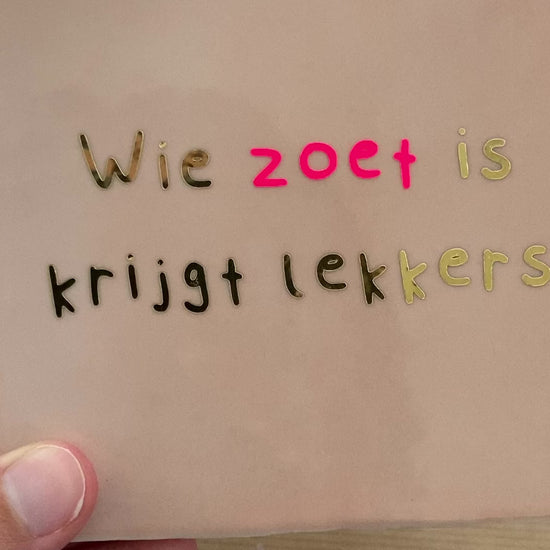 Wie zoet is
krijgt lekkers